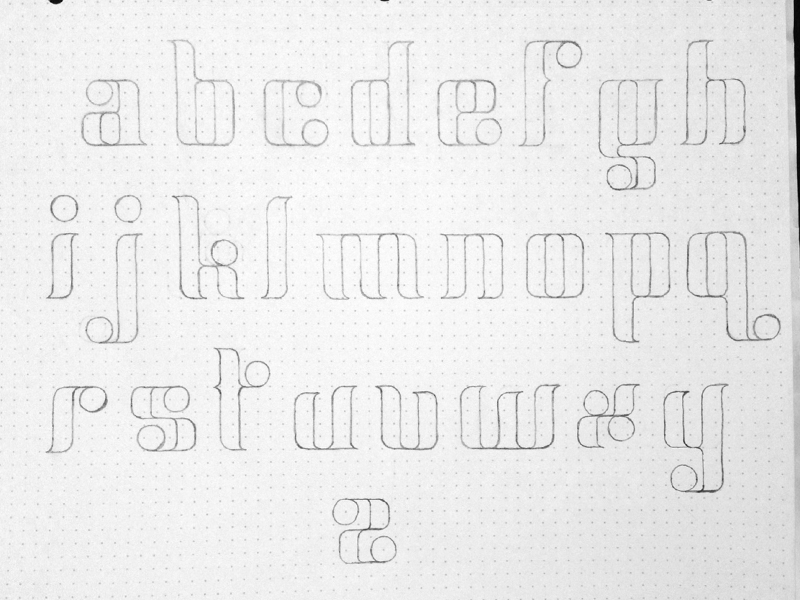 abcdefgh
ijklmnopq
rstuvwxy
z